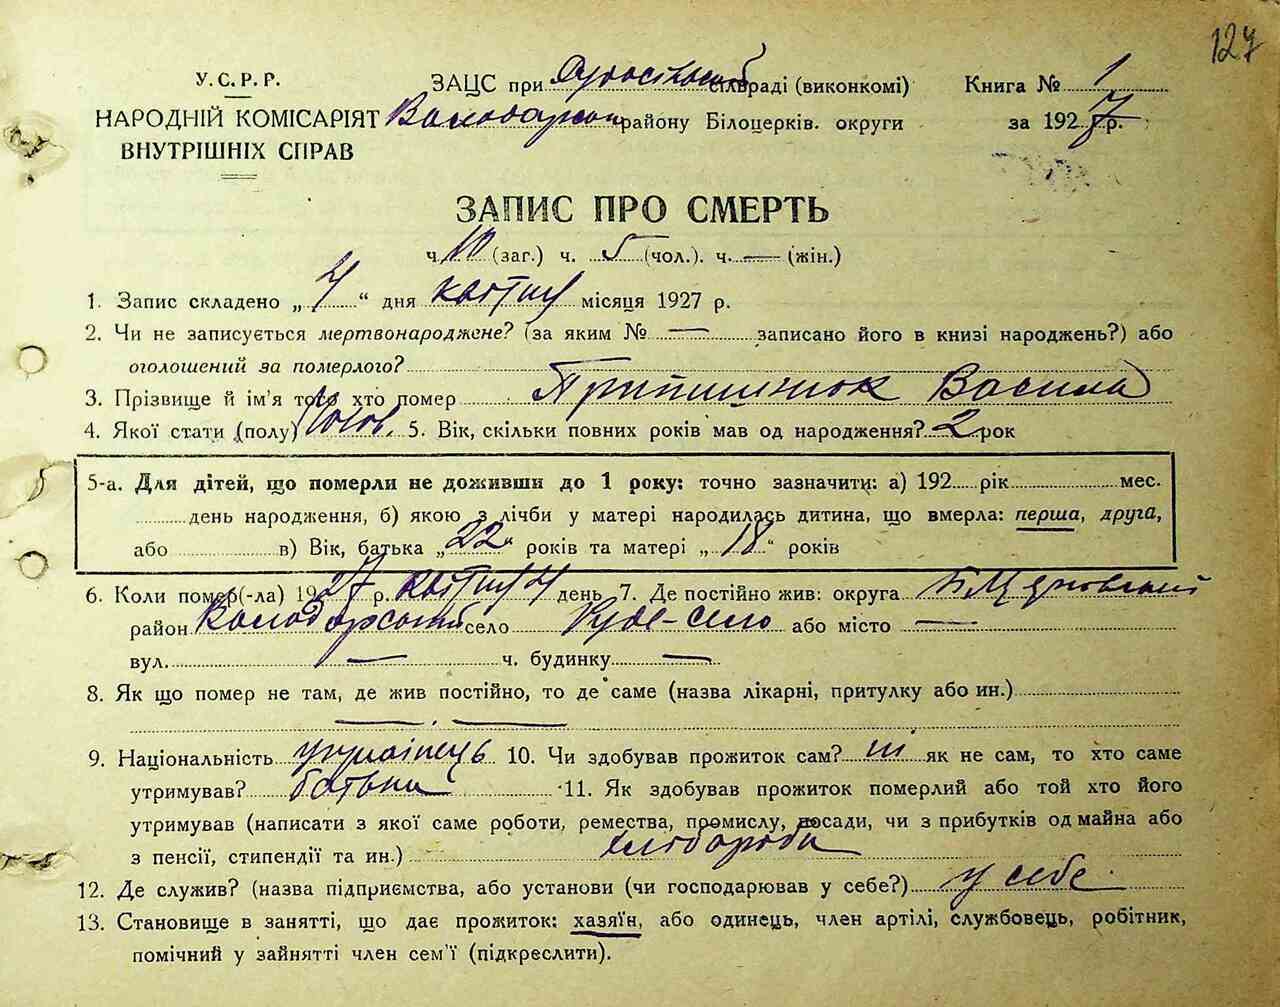 127
У.С.Р.Р.
НАРОДНІЙ КОМІСАРІЯТ
ВНУТРІШНІХ СПРАВ
ЗАЦС при сільраді (виконкомі) Книга № 1
району Білоцерків. округи за 1927 р.
ЗАПИС ПРО СМЕРТЬ
ч. 10 (заг.) ч. 5 (чол.). ч. — (жін.)
1. Запис складено „ 4 “ дня квітня місяця 1927 р.
2. Чи не записується мертвонароджене? (за яким № — записано його в книзі народжень?) або
оголошений за померлого?
3. Прізвище й ім'я того хто помер Василь
4. Якої стати (полу) Чолов. 5. Вік, скільки повних років мав од народження? 2 рок
5-а. Для дітей, що померли не доживши до 1 року: точно зазначити: а) 192 рік мес.
день народження, б) якою з лічби у матері народилась дитина, що вмерла: перша, друга,
або в) Вік, батька „ 22 “ років та матері „ 18 “ років
6. Коли помер(-ла) 1927 р. квітня 4 день 7. Де постійно жив: округа Б.Церковський
район Володарський село Руде-село або місто —
вул. — ч. будинку —
8. Як що помер не там, де жив постійно, то де саме (назва лікарні, притулку або ин.)
— —
9. Національність українець 10. Чи здобував прожиток сам? ні як не сам, то хто саме
утримував? батьки 11. Як здобував прожиток померлий або той хто його
утримував (написати з якої саме роботи, ремества, промислу, посади, чи з прибутків од майна або
з пенсії, стипендії та ин.) хлібороби
12. Де служив? (назва підприємства, або установи (чи господарював у себе?) у себе
13. Становище в занятті, що дає прожиток: хазяїн, або одинець, член артілі, службовець, робітник,
помічний у зайнятті член сем'ї (підкреслити).